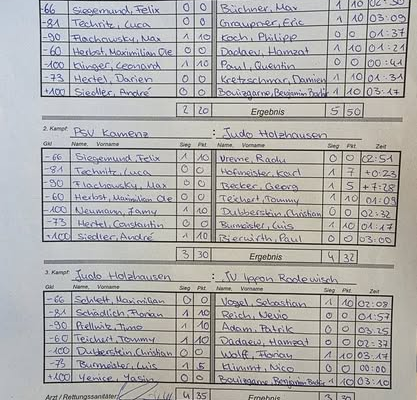 -66 Siegemund, Felix 0 0 Büchner, Max 1 10
-81 Techritz, Luca 0 0 Graupner, Eric 1 10 03:09
-90 Flachowsky, Max 1 10 Koch, Philipp 0 0 01:37
-60 Herbst, Maximilian Ole 0 0 Dadaev, Hamzat 1 10 01:21
-100 Klinger, Leonard 1 10 Paul, Quentin 0 0 00:41
-73 Hertel, Darien 0 0 Kretzschmar, Damien 1 10 01:31
+100 Siedler, André 0 0 Bouizgarne, Benjamin 1 10 03:17
2 20 Ergebnis 5 50
2. Kampf: PSV Kamenz : Judo Holzhausen
Gkl Name, Vorname Sieg Pkt. Name, Vorname Sieg Pkt. Zeit
-66 Siegemund, Felix 1 10 Vreme, Radu 0 0 02:51
-81 Techritz, Luca 0 0 Hofmeister, Karl 1 7 +0:23
-90 Flachowsky, Max 0 0 Becker, Georg 1 5 +7:28
-60 Herbst, Maximilian 0 0 Teichert, Tommy 1 10 01:09
-100 Neumann, Jamy 1 10 Dubberstein, Christian 0 0 02:32
-73 Hertel, Constantin 0 0 Burmeister, Luis 1 10 01:17
+100 Siedler, André 1 10 Bierwirth, Paul 0 0 03:00
3 30 Ergebnis 4 32
3. Kampf: Judo Holzhausen : JV Ippon Rodewisch
Gkl Name, Vorname Sieg Pkt. Name, Vorname Sieg Pkt. Zeit
-66 Schlett, Maximilian 0 0 Vogel, Sebastian 1 10 02:08
-81 Schädlich, Florian 1 10 Reich, Nevio 0 0 01:57
-90 Prellnitz, Timo 1 10 Adam, Patrik 0 0 03:25
-60 Teichert, Tommy 1 10 Dadaew, Hamzat 0 0 02:37
-100 Dubberstein, Christian 0 0 Wolff, Florian 1 10 03:17
-73 Burmeister, Luis 1 5 Klimmt, Nico 0 0 00:00
+100 Yenice, Yasin 0 0 Bouizgarne, Benjamin 1 10 03:10
Arzt / Rettungssanitäter 4 35 Ergebnis 3 30